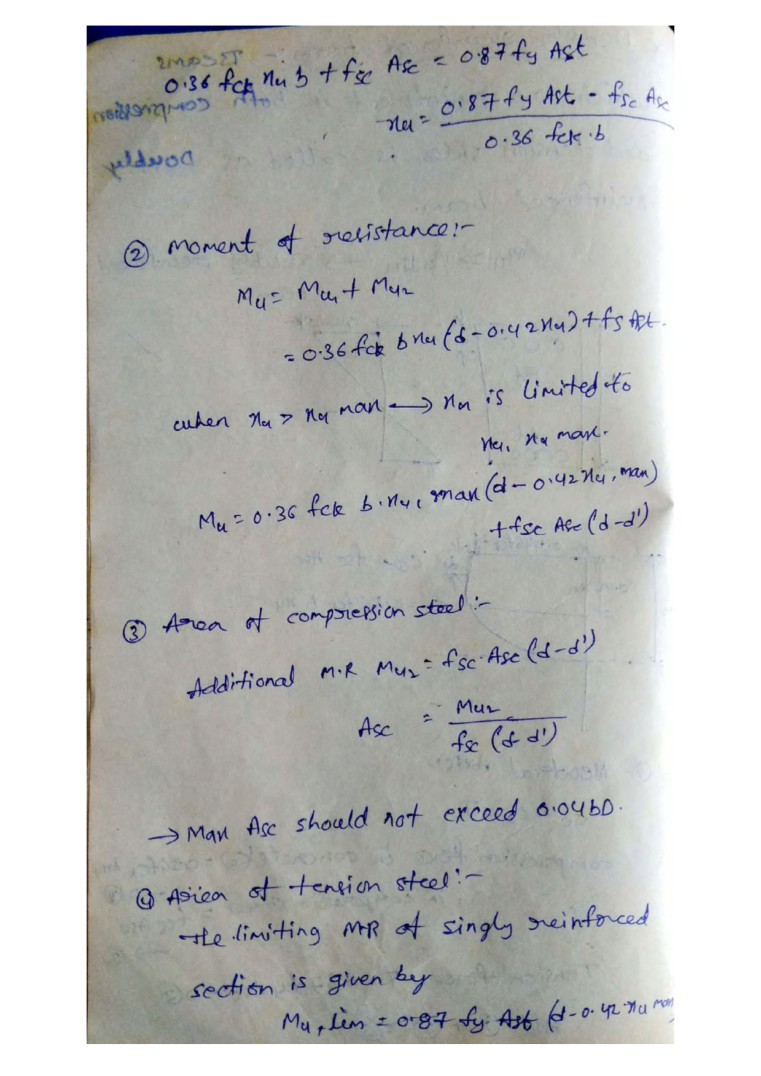 0.36 fck xu b + fsc Asc = 0.87 fy Ast
xu = (0.87 fy Ast - fsc Asc) / (0.36 fck . b)
② Moment of resistance:-
Mu = Mu1 + Mu2
= 0.36 fck b xu (d - 0.42 xu) + fs Ast.
when xu > xu max → xu is limited to
xu, xu max.
Mu = 0.36 fck b. xu, max (d - 0.42 xu, max)
+ fsc Asc (d - d')
③ Area of compression steel:-
Additional M.R Mu2 = fsc. Asc (d - d')
Asc = Mu2 / fsc (d d')
→ Max Asc should not exceed 0.04bD.
④ Area of tension steel:-
The limiting MR of singly reinforced
section is given by
Mu, lim = 0.87 fy Ast (d - 0.42 xu max